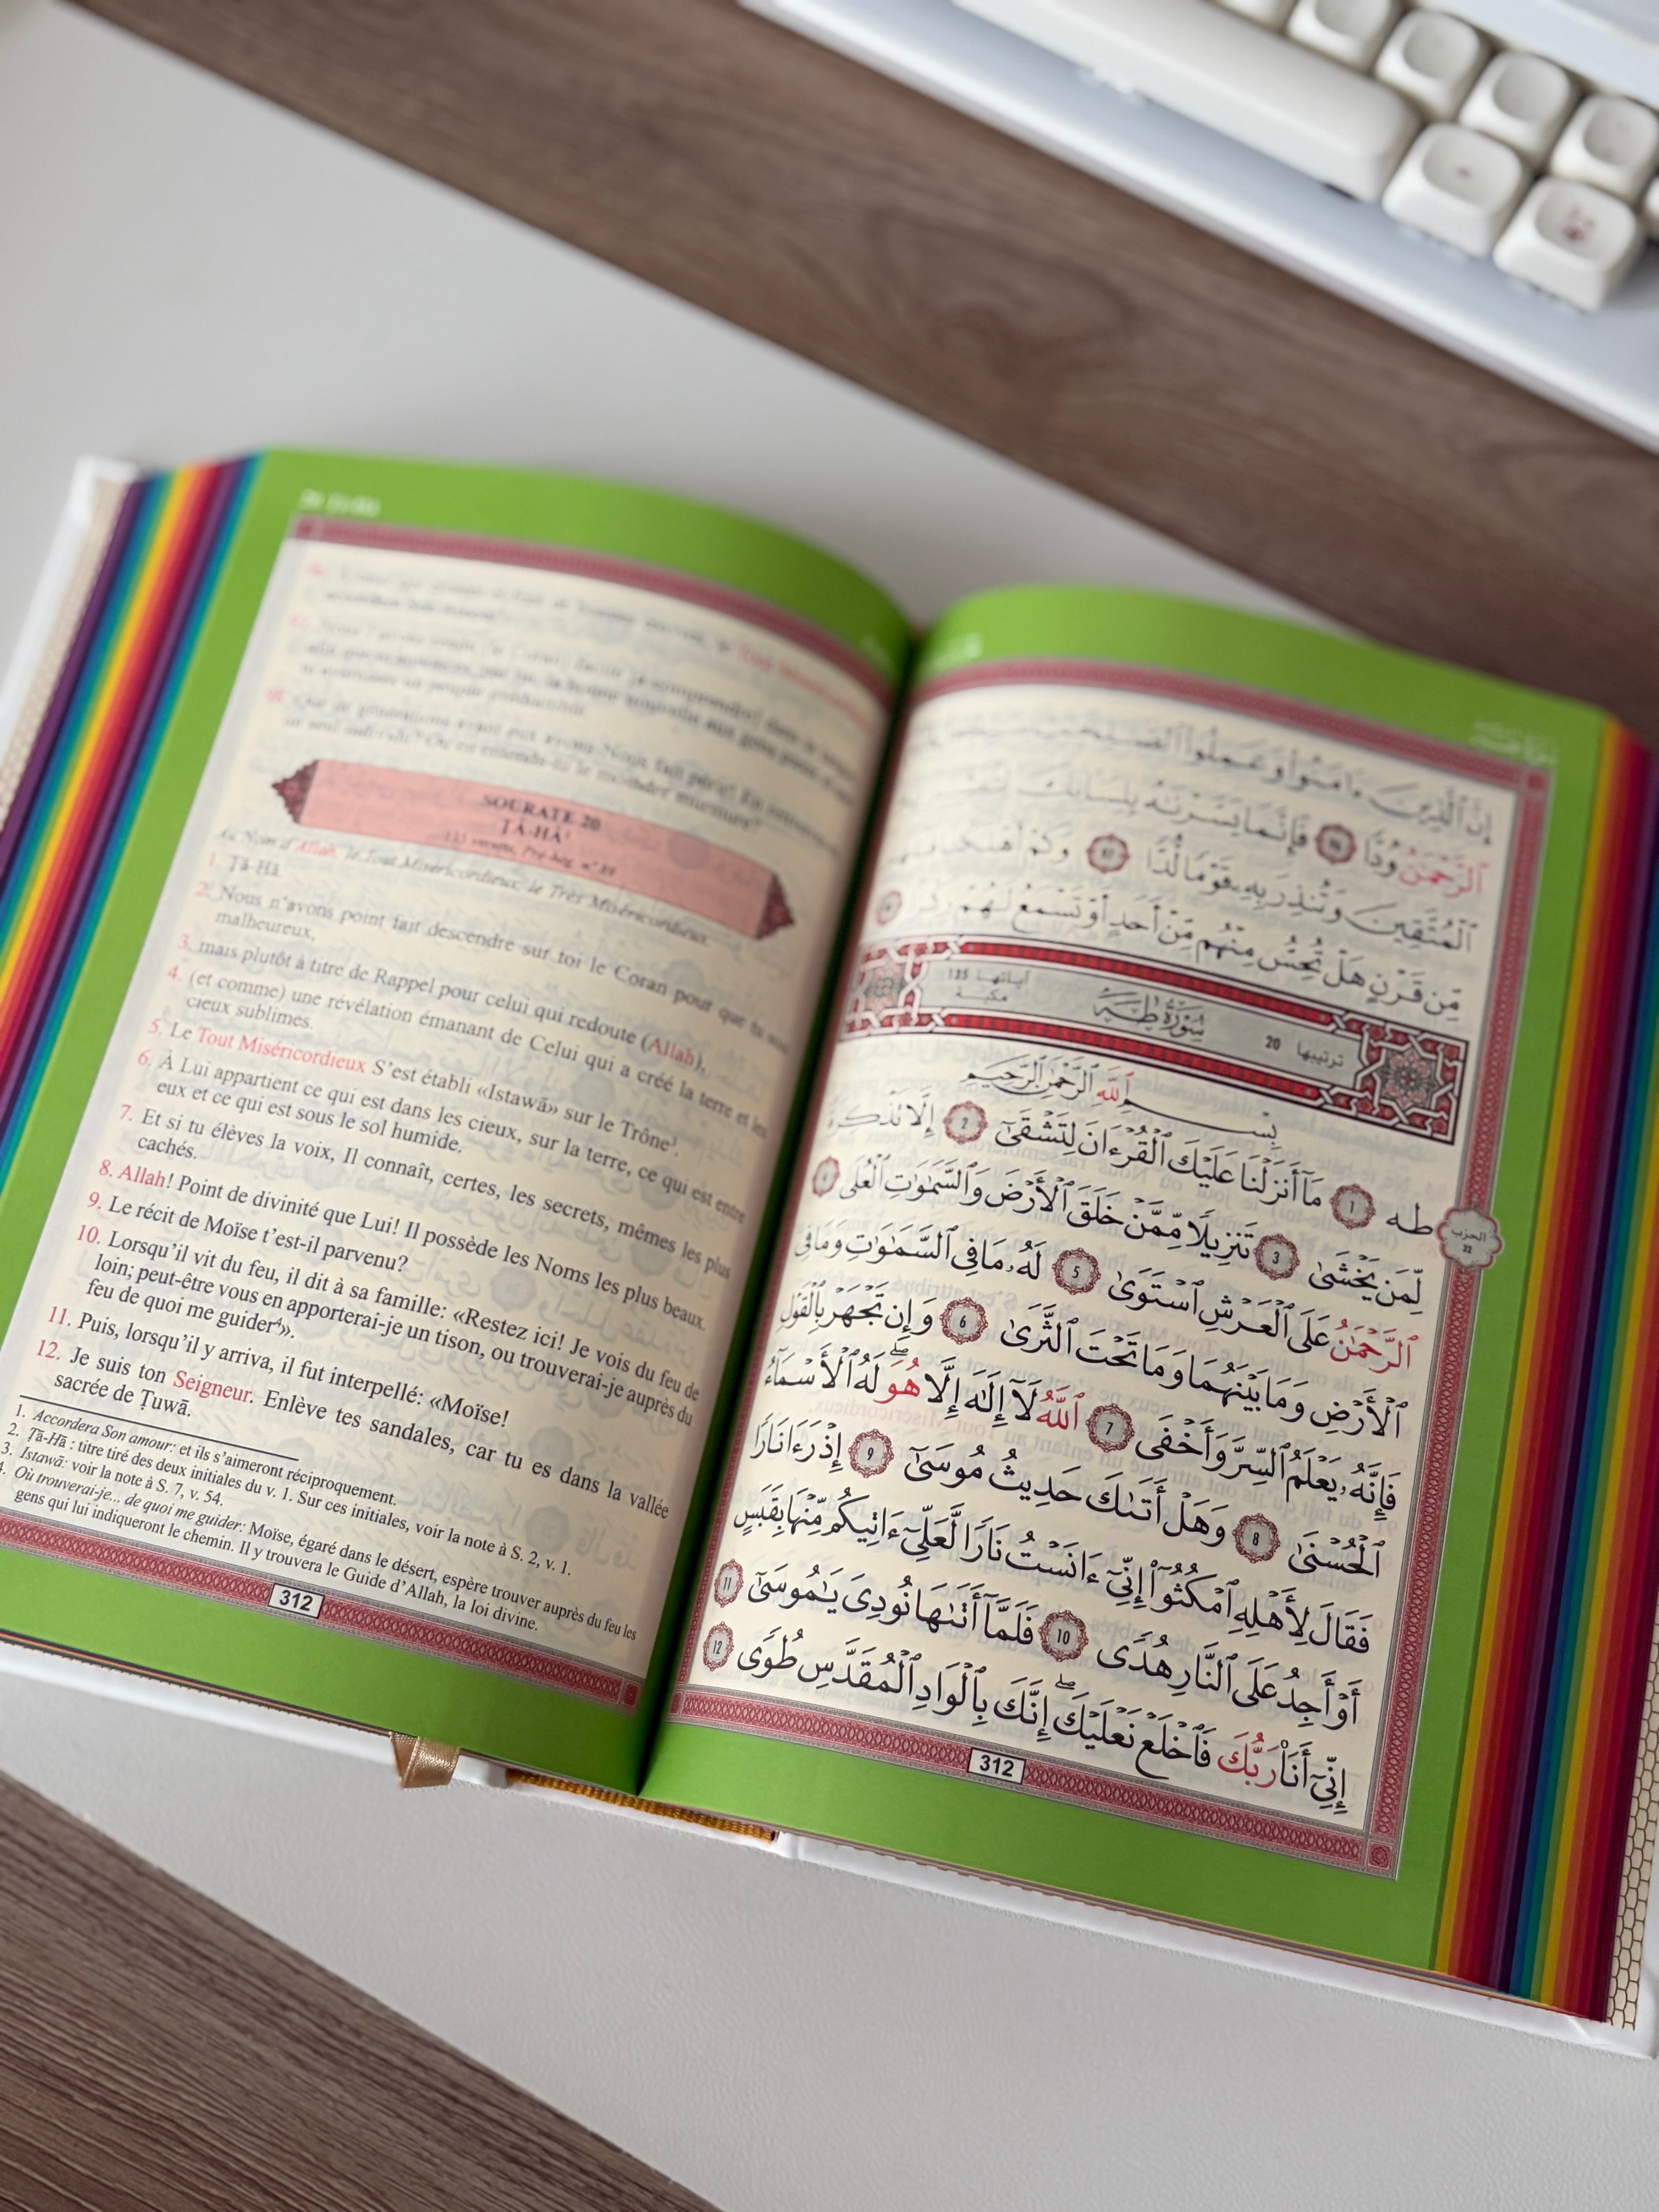 SOURATE 20
ṬĀ-HĀ¹
Au Nom d'Allah, le Tout Miséricordieux, le Très Miséricordieux.
1. Ṭā-Hā.
2. Nous n'avons point fait descendre sur toi le Coran pour que tu sois
malheureux,
3. mais plutôt à titre de Rappel pour celui qui redoute (Allah),
4. (et comme) une révélation émanant de Celui qui a créé la terre et les
cieux sublimes.
5. Le Tout Miséricordieux S'est établi «Istawā» sur le Trône³.
6. À Lui appartient ce qui est dans les cieux, sur la terre, ce qui est entre
eux et ce qui est sous le sol humide.
7. Et si tu élèves la voix, Il connaît, certes, les secrets, mêmes les plus
cachés.
8. Allah! Point de divinité que Lui! Il possède les Noms les plus beaux.
9. Le récit de Moïse t'est-il parvenu?
10. Lorsqu'il vit du feu, il dit à sa famille: «Restez ici! Je vois du feu de
loin; peut-être vous en apporterai-je un tison, ou trouverai-je auprès du
feu de quoi me guider⁴».
11. Puis, lorsqu'il y arriva, il fut interpellé: «Moïse!
12. Je suis ton Seigneur. Enlève tes sandales, car tu es dans la vallée
sacrée de Ṭuwā.
1. Accordera Son amour: et ils s'aimeront réciproquement.
2. Ṭā-Hā : titre tiré des deux initiales du v. 1. Sur ces initiales, voir la note à S. 2, v. 1.
3. Istawā: voir la note à S. 7, v. 54.
4. Où trouverai-je... de quoi me guider: Moïse, égaré dans le désert, espère trouver auprès du feu les
gens qui lui indiqueront le chemin. Il y trouvera le Guide d'Allah, la loi divine.
312
إِنَّ ٱلَّذِينَ ءَامَنُوا۟ وَعَمِلُوا۟
ٱلرَّحْمَٰنُ وُدًّا ٩٦ فَإِنَّمَا يَسَّرْنَٰهُ بِلِسَانِكَ
ٱلْمُتَّقِينَ وَتُنذِرَ بِهِۦ قَوْمًا لُّدًّا ٩٧ وَكَمْ أَهْلَكْنَا
مِّن قَرْنٍ هَلْ تُحِسُّ مِنْهُم مِّنْ أَحَدٍ أَوْ تَسْمَعُ لَهُمْ رِكْزًا
ترتيبها 20 سُورَةُ طه آياتها 135 مكية
بِسْمِ ٱللَّهِ ٱلرَّحْمَٰنِ ٱلرَّحِيمِ
طه 1 مَآ أَنزَلْنَا عَلَيْكَ ٱلْقُرْءَانَ لِتَشْقَىٰٓ 2 إِلَّا تَذْكِرَةً
لِّمَن يَخْشَىٰ 3 تَنزِيلًا مِّمَّنْ خَلَقَ ٱلْأَرْضَ وَٱلسَّمَٰوَٰتِ ٱلْعُلَى 4
ٱلرَّحْمَٰنُ عَلَى ٱلْعَرْشِ ٱسْتَوَىٰ 5 لَهُۥ مَا فِى ٱلسَّمَٰوَٰتِ وَمَا فِى
ٱلْأَرْضِ وَمَا بَيْنَهُمَا وَمَا تَحْتَ ٱلثَّرَىٰ 6 وَإِن تَجْهَرْ بِٱلْقَوْلِ
فَإِنَّهُۥ يَعْلَمُ ٱلسِّرَّ وَأَخْفَى 7 ٱللَّهُ لَآ إِلَٰهَ إِلَّا هُوَ ۖ لَهُ ٱلْأَسْمَآءُ
ٱلْحُسْنَىٰ 8 وَهَلْ أَتَىٰكَ حَدِيثُ مُوسَىٰٓ 9 إِذْ رَءَا نَارًا
فَقَالَ لِأَهْلِهِ ٱمْكُثُوٓا۟ إِنِّىٓ ءَانَسْتُ نَارًا لَّعَلِّىٓ ءَاتِيكُم مِّنْهَا بِقَبَسٍ
أَوْ أَجِدُ عَلَى ٱلنَّارِ هُدًى 10 فَلَمَّآ أَتَىٰهَا نُودِىَ يَٰمُوسَىٰٓ 11
إِنِّىٓ أَنَا۠ رَبُّكَ فَٱخْلَعْ نَعْلَيْكَ ۖ إِنَّكَ بِٱلْوَادِ ٱلْمُقَدَّسِ طُوًى 12
الحزب
32
312